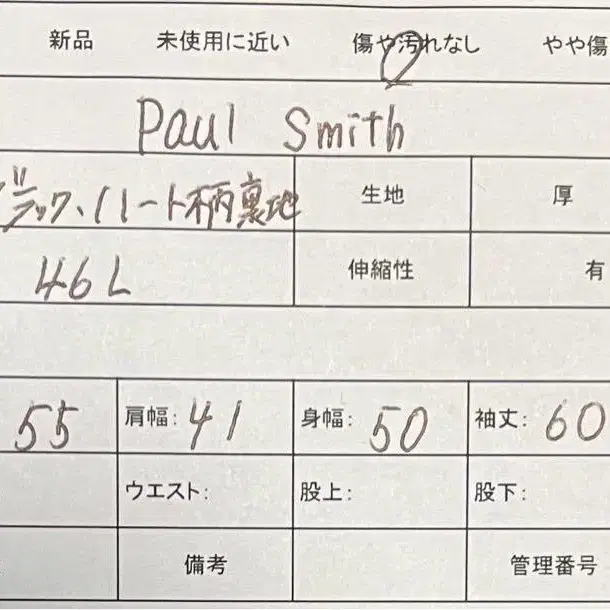 新品 未使用に近い 傷や汚れなし やや傷
Paul Smith
ブラック、ハート柄裏地 生地 厚
46L 伸縮性 有
55 肩幅: 41 身幅: 50 袖丈: 60
ウエスト: 股上: 股下:
備考 管理番号